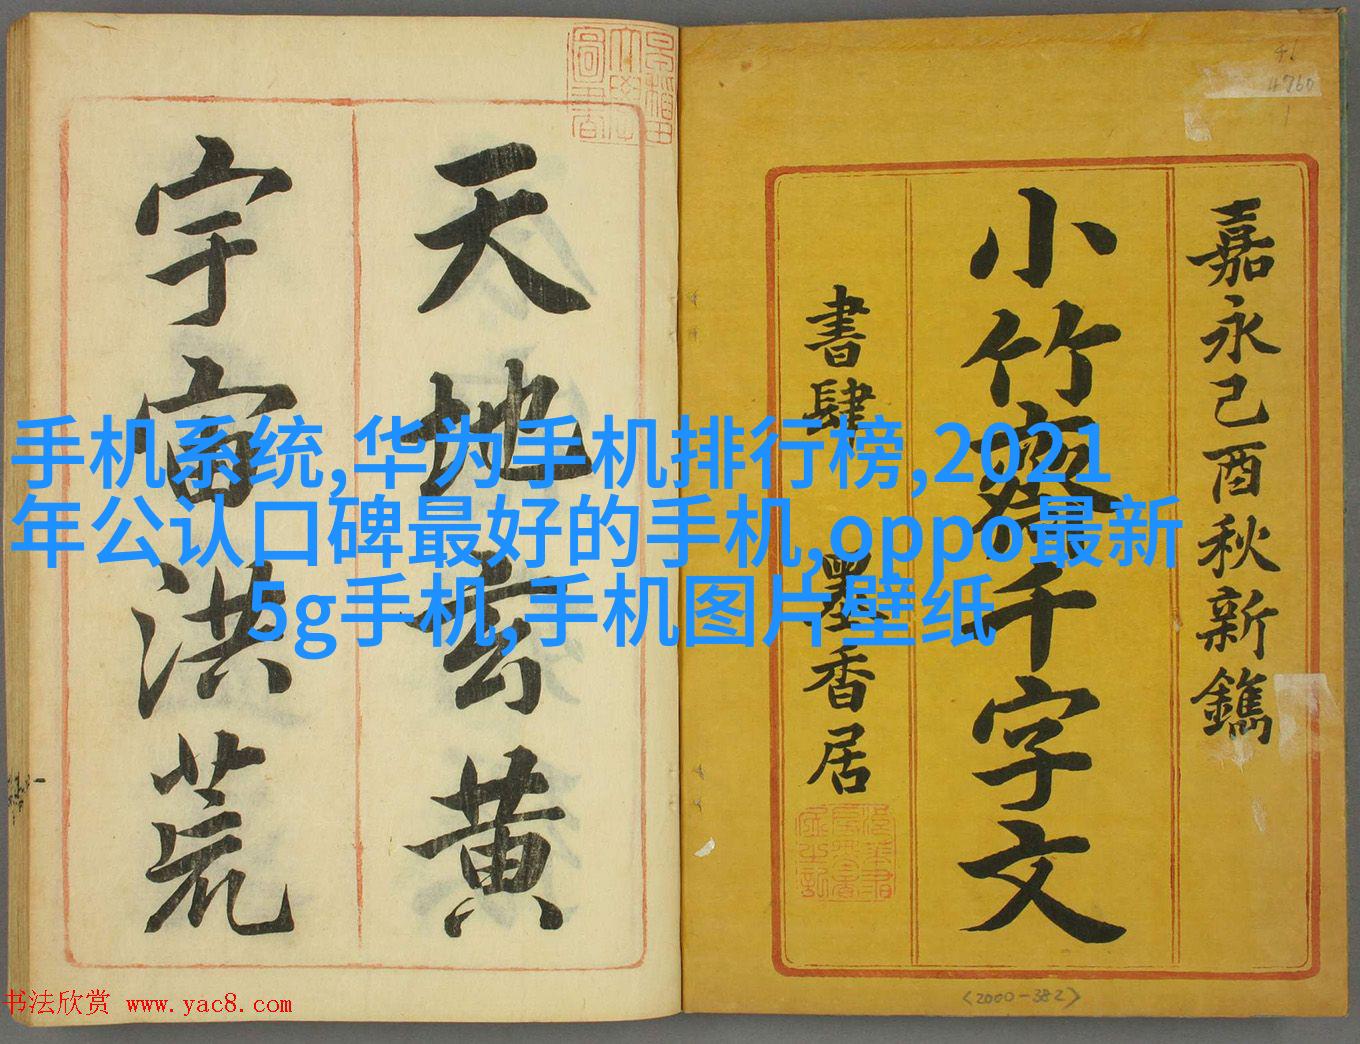 嘉永己酉秋新鐫
小竹齋千字文
書肆 墨香居
天地玄黄
宇宙洪荒
手机系统,华为手机排行榜,2021
年公认口碑最好的手机,oppo最新
5g手机,手机图片壁纸
4760
<2000-382>
书法欣赏 www.yac8.com